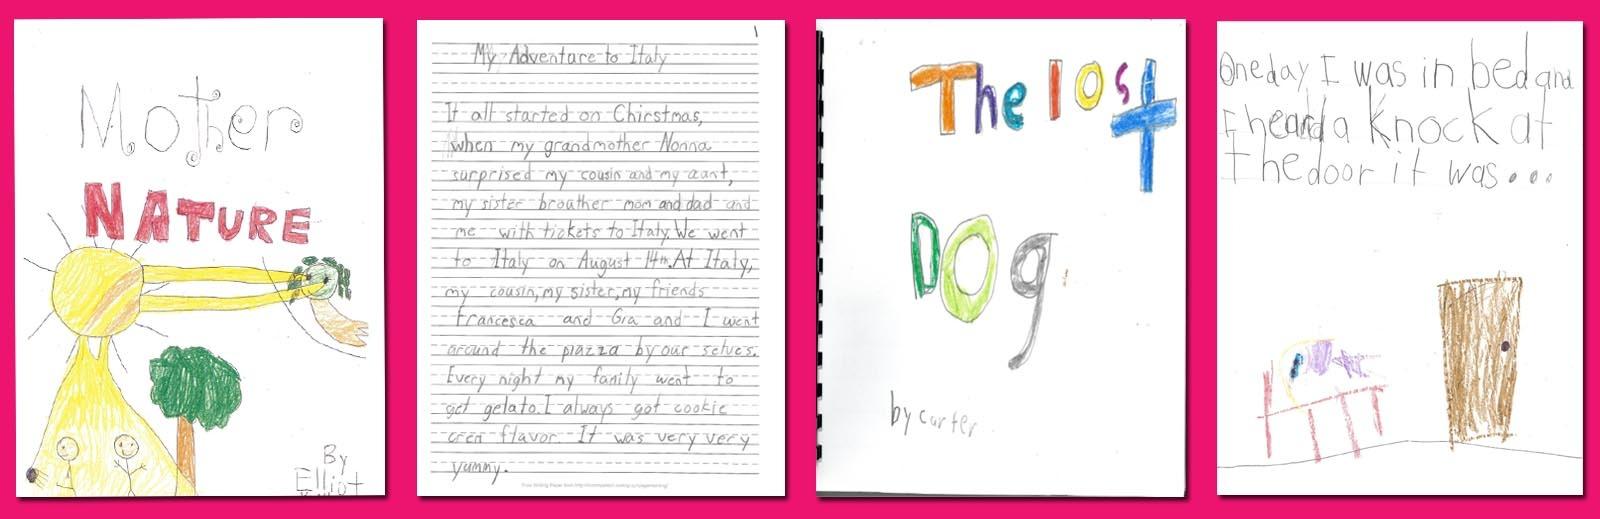 Mother
NATURE
By
Elliot
1
My Adventure to Italy
It all started on Chirstmas,
when my grandmother Nonna
surprised my cousin and my aunt,
my sister brouther mom and dad and
me with tickets to Italy. We went
to Italy on August 14th. At Italy,
my cousin, my sister, my friends
Francesca and Gia and I went
around the piazza by our selves.
Every night my family went to
get gelato. I always got cookie
crem flavor. It was very very
yummy.
The lost
Dog
by carter
One day I was in bed and
I heard a knock at
the door it was...